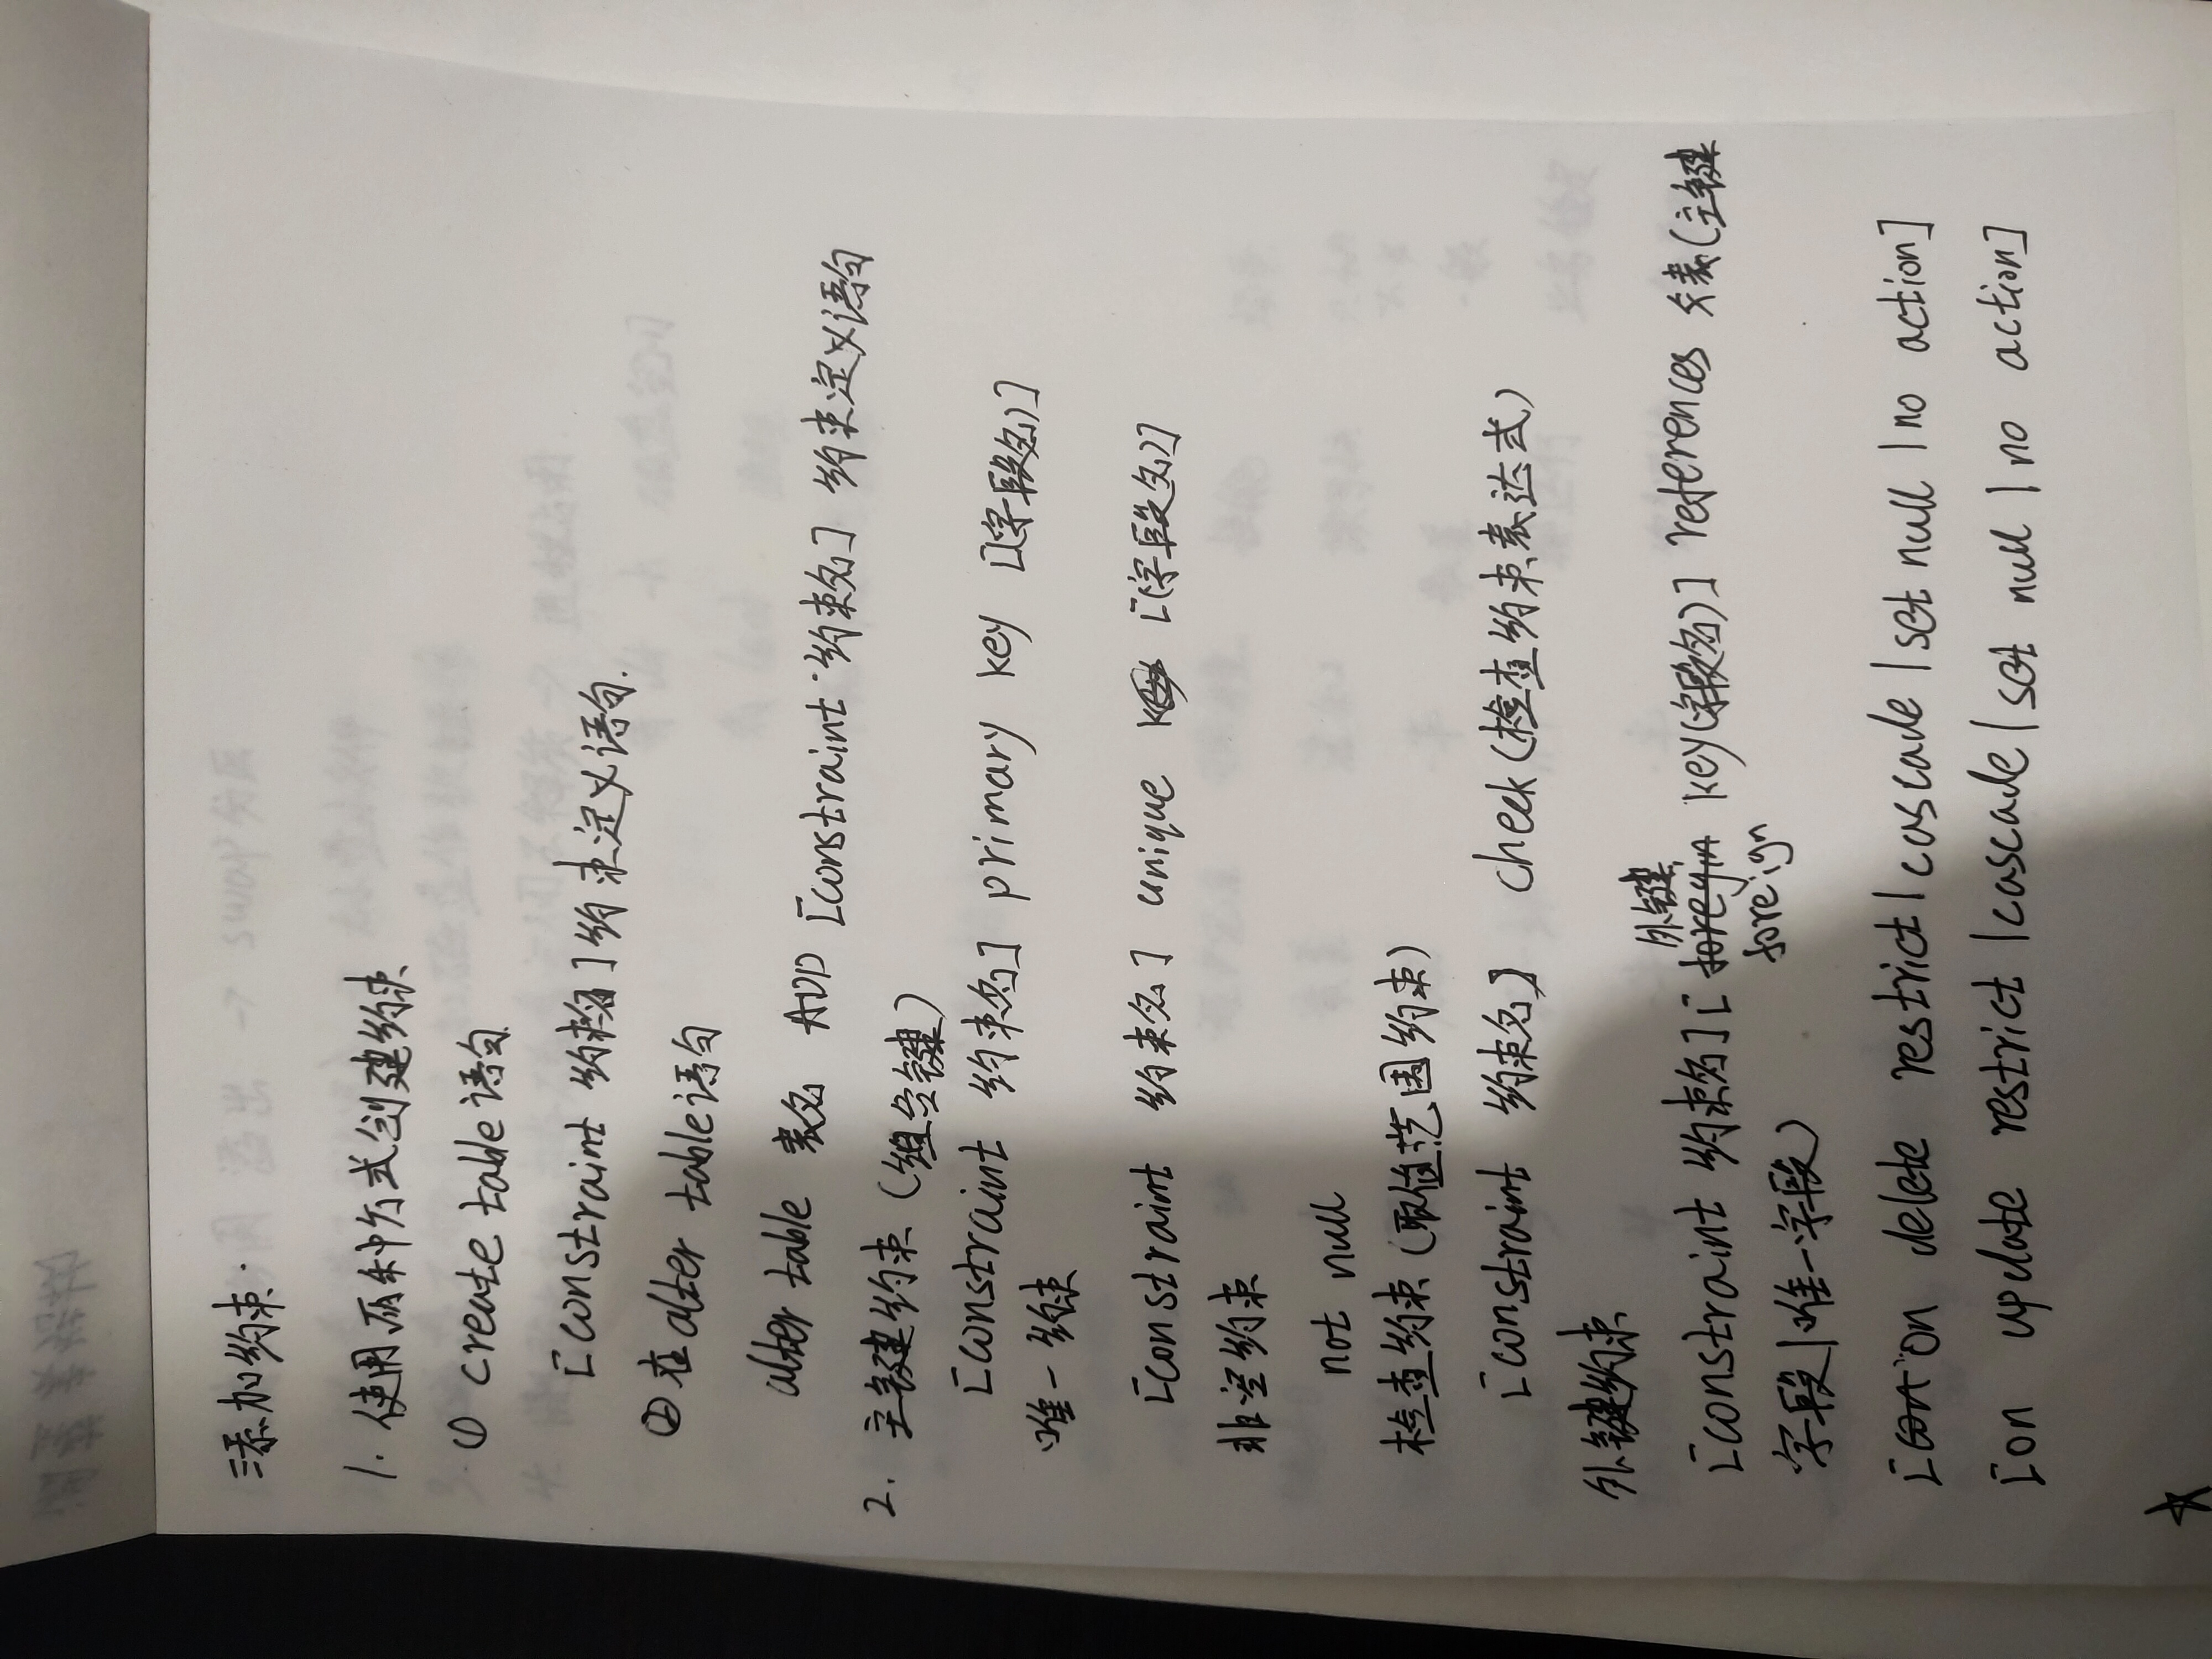 添加约束.
1. 使用两种方式创建约束
① create table 语句
[constraint 约束名] 约束定义语句.
② 在 alter table 语句
alter table 表名 ADD [constraint 约束名] 约束定义语句
2. 主键约束 (组合键)
[constraint 约束名] primary key [(字段名)]
唯一约束
[constraint 约束名] unique [(字段名)]
非空约束
not null
检查约束 (取值范围约束)
[constraint 约束名] check (检查约束表达式)
外键约束
外键
[constraint 约束名] [foregin key(字段名)] references 父表(主键
foreign
字段|唯一字段)
[on delete restrict|cascade|set null|no action]
[on update restrict|cascade|set null|no action]